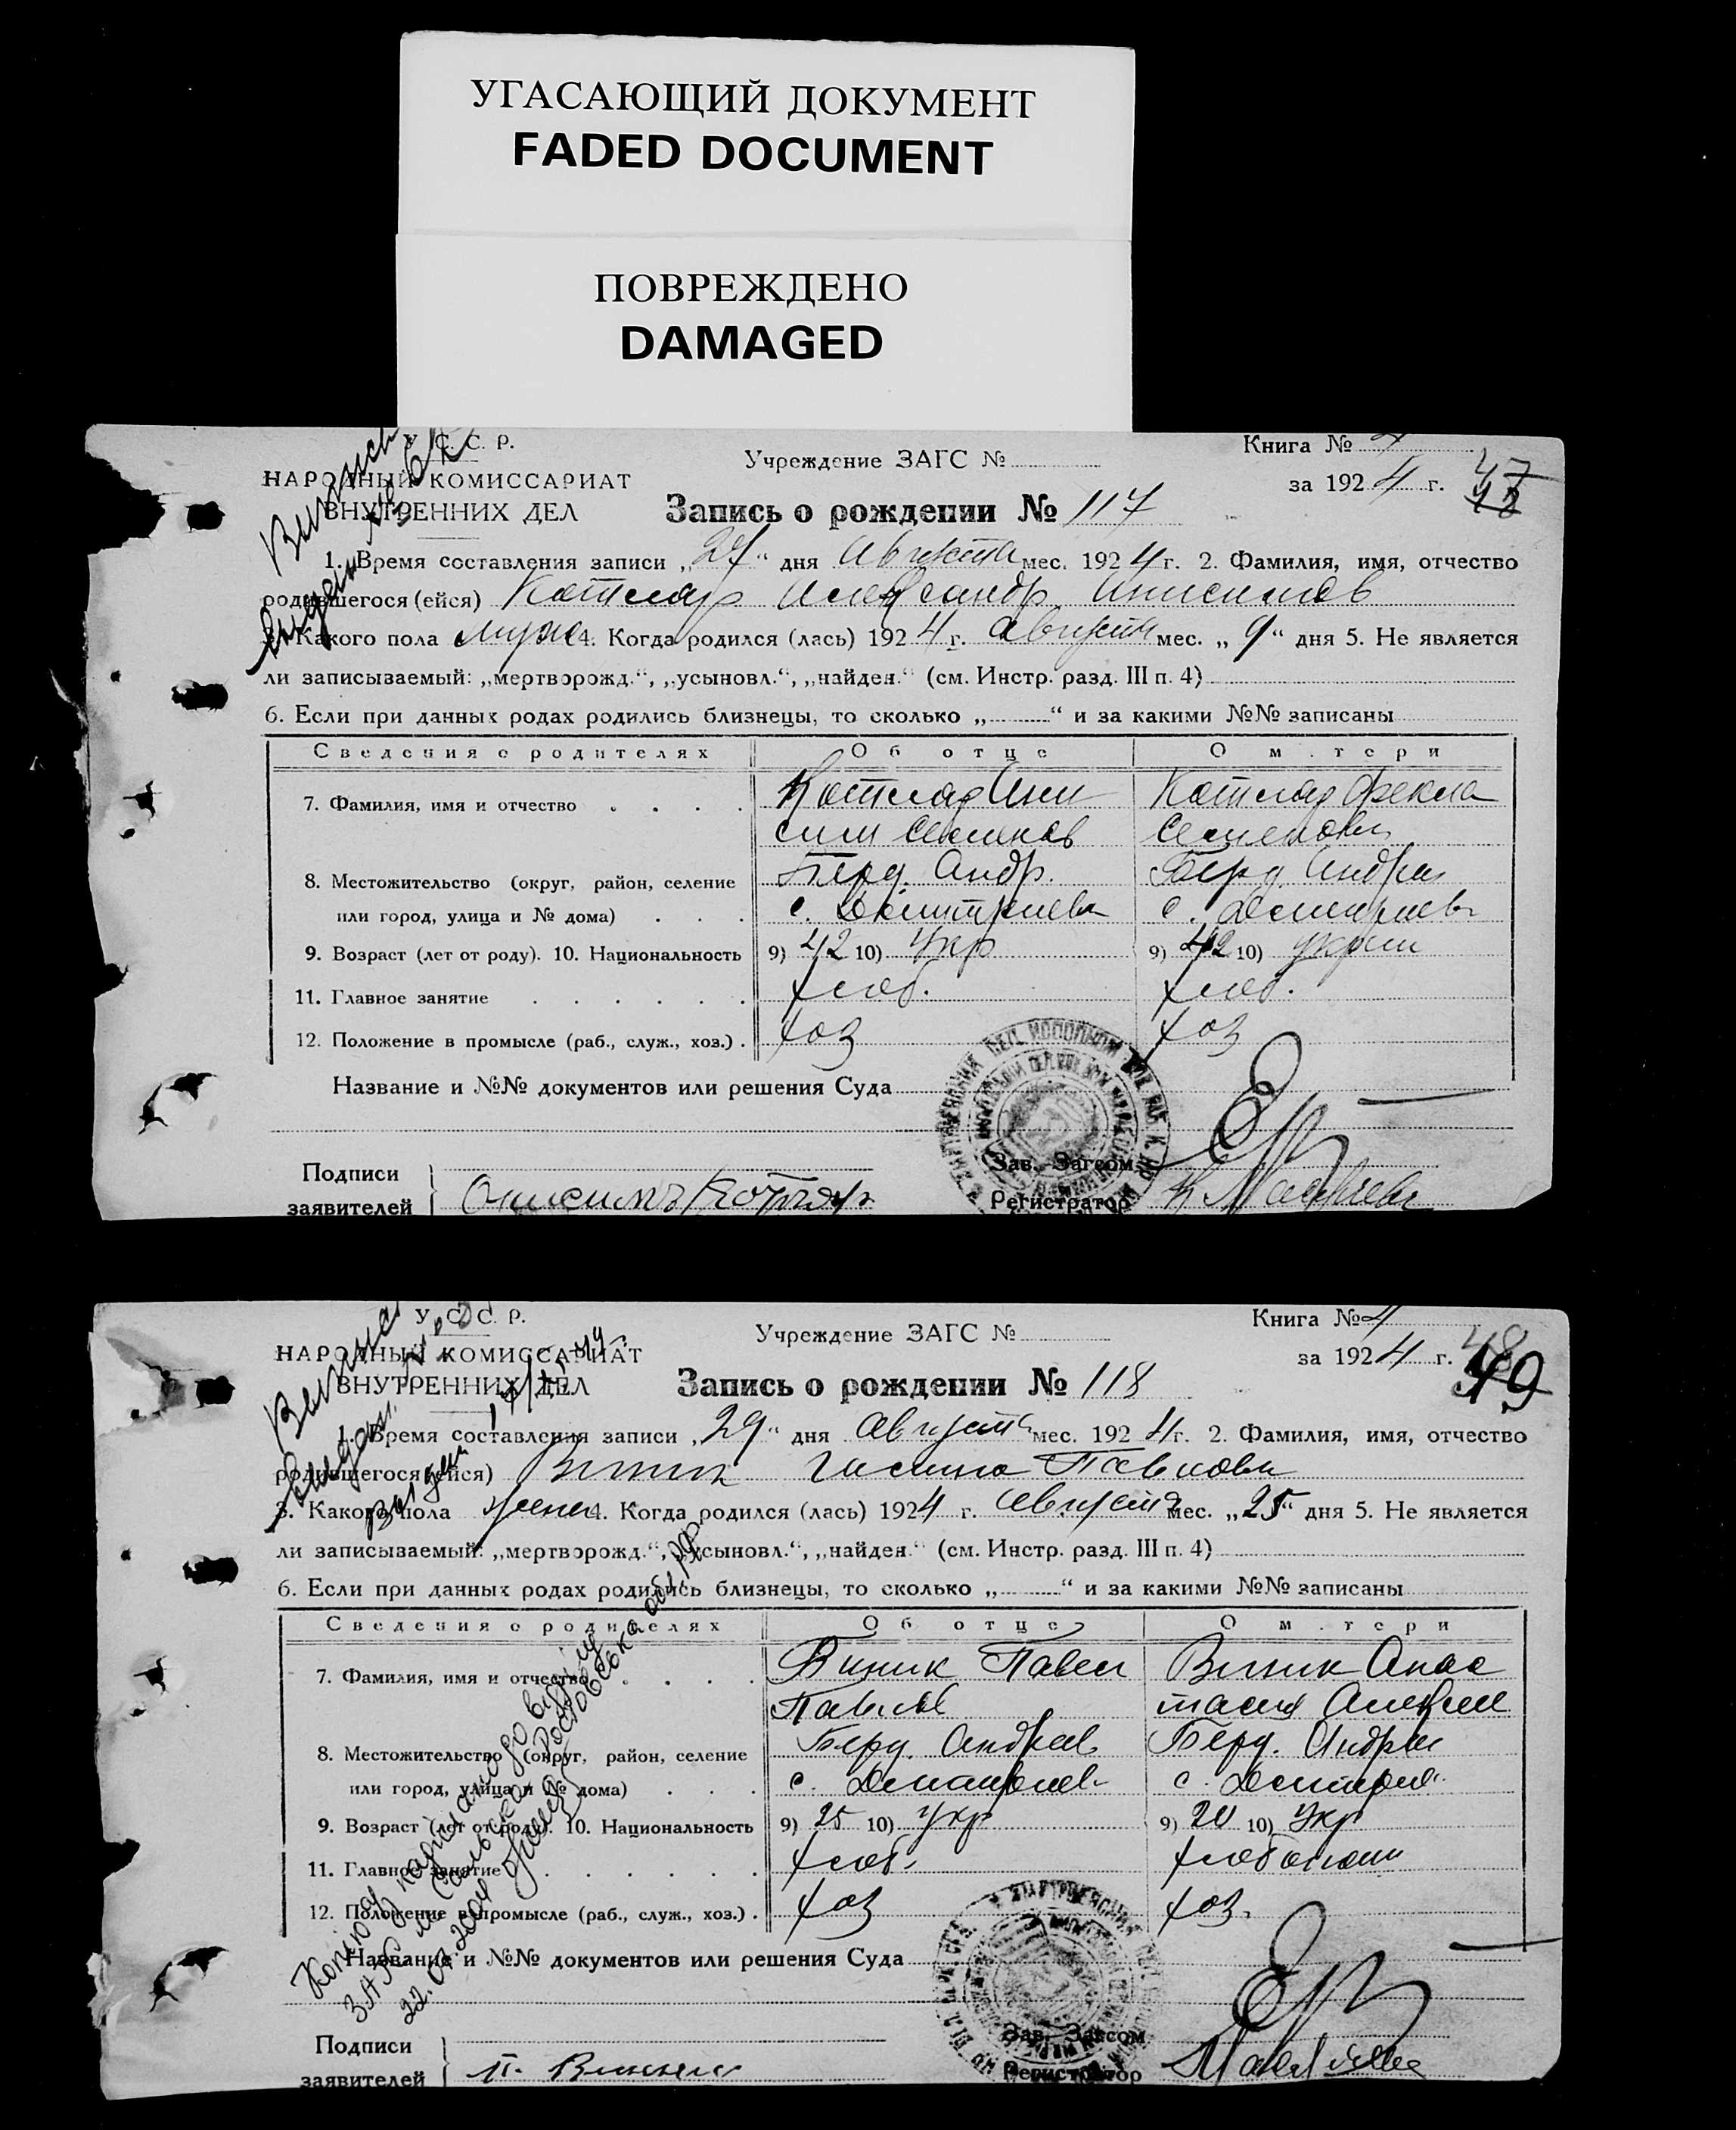 УГАСАЮЩИЙ ДОКУМЕНТ
FADED DOCUMENT
ПОВРЕЖДЕНО
DAMAGED
У. С. С. Р.
НАРОДНЫЙ КОМИССАРИАТ
ВНУТРЕННИХ ДЕЛ
Учреждение ЗАГС №
Книга №
за 1924 г.
47
Запись о рождении № 117
1. Время составления записи „27“ дня Августа мес. 1924 г. 2. Фамилия, имя, отчество
родившегося (ейся) Котляр Александр Анисимов
3. Какого пола муж 4. Когда родился (лась) 1924 г. Августа мес. „9“ дня 5. Не является
ли записываемый: „мертворожд.“, „усыновл.“, „найден.“ (см. Инстр. разд. III п. 4)
6. Если при данных родах родились близнецы, то сколько „ “ и за какими №№ записаны
Сведения о родителях Об отце О м тери
7. Фамилия, имя и отчество Котляр Ани Котляр Фекла
сим Семенов Семенова
8. Местожительство (округ, район, селение Берд. Андр. Берд. Андре
или город, улица и № дома) с. Дмитриевк с. Дмитриев
9. Возраст (лет от роду). 10. Национальность 9) 42 10) Укр 9) 42 10) украи
11. Главное занятие хлеб. хлеб.
12. Положение в промысле (раб., служ., хоз.) хоз хоз
Название и №№ документов или решения Суда
Подписи
заявителей Онисимъ Котляръ
Зав. Загсом
Регистратор
У. С. С. Р.
НАРОДНЫЙ КОМИССАРИАТ
ВНУТРЕННИХ ДЕЛ
Учреждение ЗАГС №
Книга № 4
за 1924 г.
48
49
Запись о рождении № 118
1. Время составления записи „29“ дня Августа мес. 1924 г. 2. Фамилия, имя, отчество
родившегося (ейся) Виник Галина Павлова
3. Какого пола женс 4. Когда родился (лась) 1924 г. Августа мес. „25“ дня 5. Не является
ли записываемый: „мертворожд.“, „усыновл.“, „найден.“ (см. Инстр. разд. III п. 4)
6. Если при данных родах родились близнецы, то сколько „ “ и за какими №№ записаны
Сведения о родителях Об отце О м тери
7. Фамилия, имя и отчество Виник Павел Виник Анас
Павлов тасия Алексее
8. Местожительство (округ, район, селение Берд. Андреев Берд. Андре
или город, улица и № дома) с. Дмитриев с. Дмитрие
9. Возраст (лет от роду). 10. Национальность 9) 25 10) Укр 9) 10) Укр
11. Главное занятие хлеб. хлебопаш
12. Положение в промысле (раб., служ., хоз.) хоз хоз.
Название и №№ документов или решения Суда
Подписи
заявителей П. Виник
Зав. Загсом
Регистратор